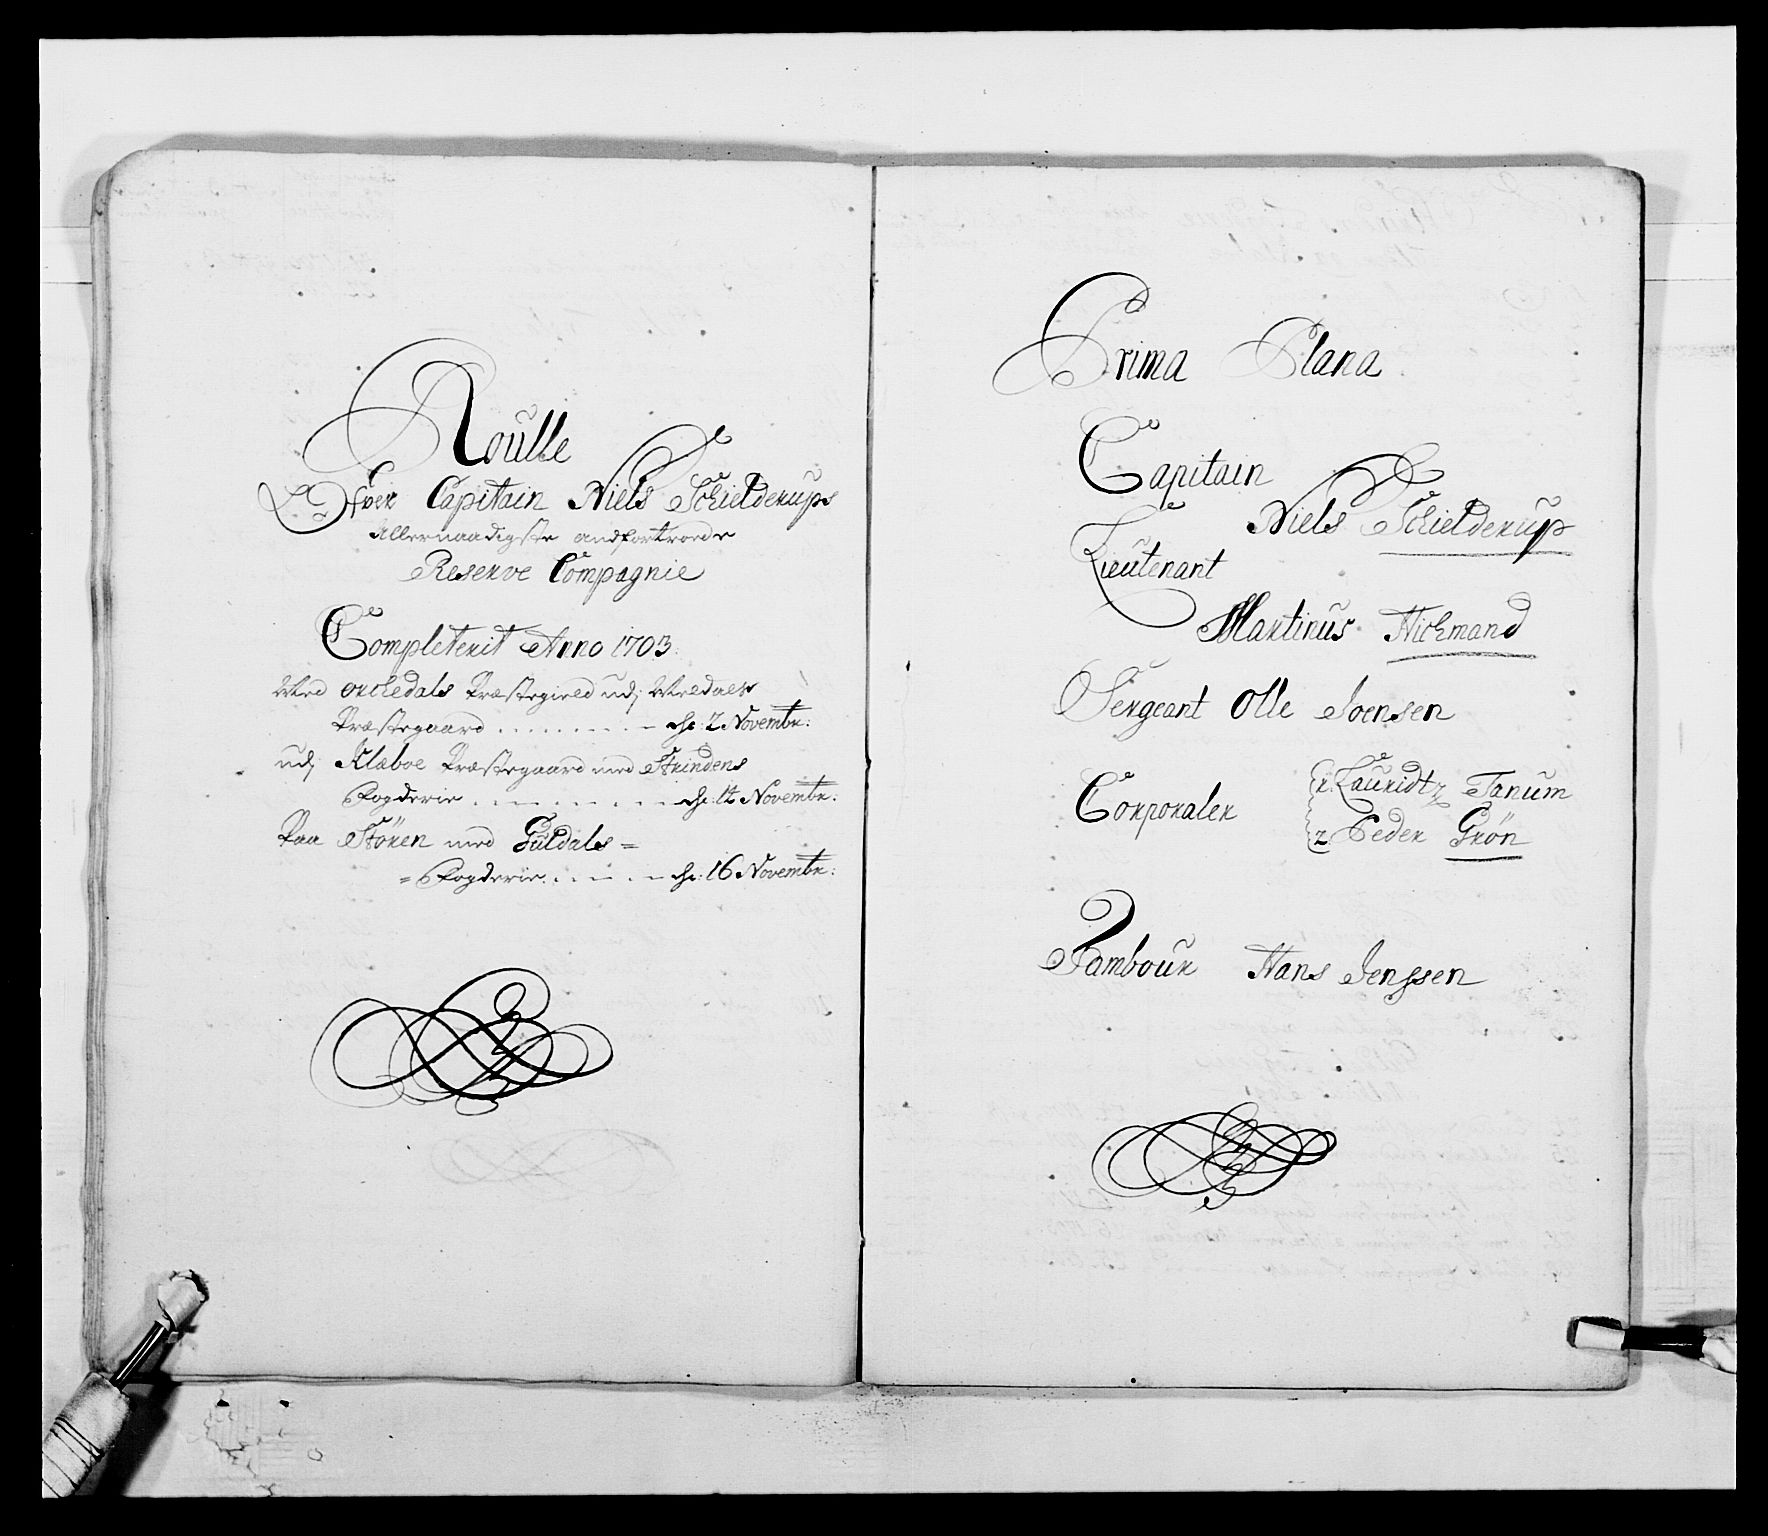 Roulle
Ofver Capitain Niels Schielderups
Allernaadigste andfortroede
Reserve Compagnie
Completerit Anno 1703.
Med Orckedals Præstegield udj Meldals
Præstegaard . . . . . . . d: 2 Novembr:
udj Klæboe Præstegaard med Strindens
Fogderie . . . . . . . d: 14 Novembr:
Paa Stören med Guldals =
= Fogderie . . . . . d: 16 Novembr:
Prima Plana
Capitain
Niels Schielderup
Lieutenant
Martinus Hichmand
Sergeant Olle Joensen
Corporaler
1. Lauridtz Tanum
2 Peder Grön
Tambour Hans Jenssen